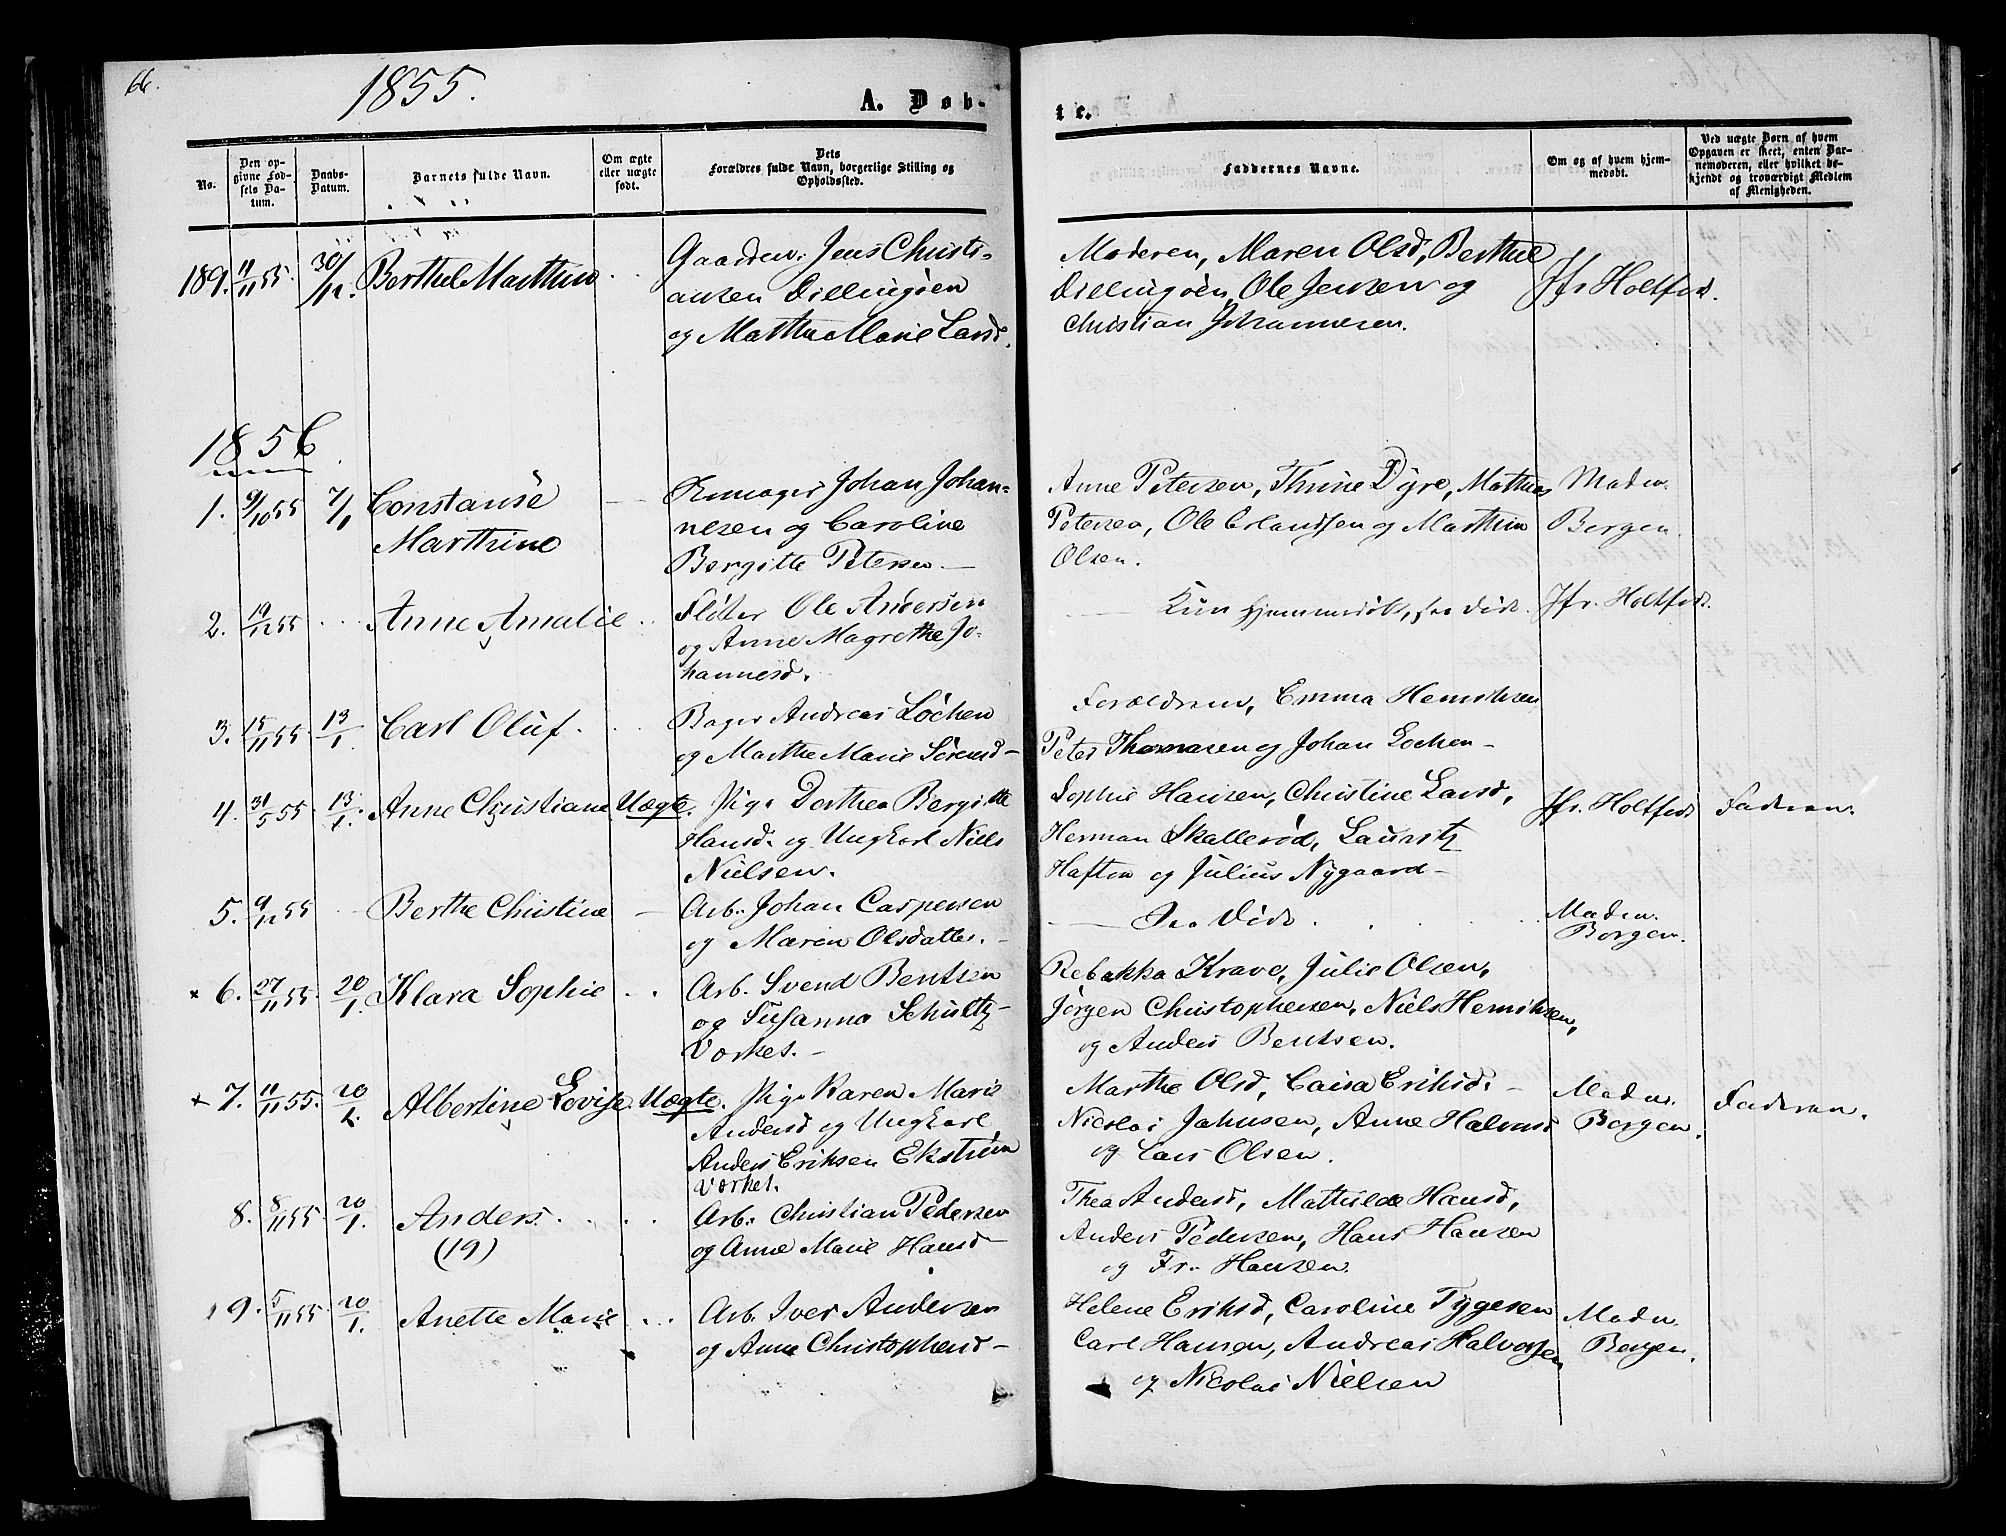 66.
1855.
A. Døb-
te.
No.
Den op-
givne Fød-
sels Da-
tum.
Daabs-
Datum.
Barnets fulde Navn.
Om ægte
eller uægte
født.
Dets
Forældres fulde Navn, borgerlige Stilling og
Opholdssted.
Faddernes Navne.
Om og af hvem hjem-
medøbt.
Ved uægte Børn af hvem
Opgaven er skeet, enten Bar-
nemoderen, eller hvilket be-
kjendt og troværdigt Medlem
af Menigheden.
189. 11/11 55. 30/12. Berthel Marthin Jens Christi-
ansen Dillingøen
og Marthe Marie Larsd.
Moderen, Maren Olsd, Berthel
Dillingøen, Ole Jensen og
Christian Johannesen.
Jfr Holtfod.
1856
1. 9/10 55 7/1 Constanse
Marthine
Johan Johan-
nesen og Caroline
Bergitte Petersen. —
Anne Petersen, Thrine Dyre, Mathias
Petersen, Ole Erlandsen og Marthin
Olsen.
Madm.
Borgen.
2. 19/12 55 Anne Amalie Fløter Ole Andersen
og Anne Magrethe Jo-
hannesd.
Kun hjemmedøbt, saa død. Jfr. Holtfod.
3. 15/11 55 13/1. Carl Oluf. Bager Andreas Løchen
og Marthe Marie Sørensd —
Forældrene, Emma Henriksen
Peter Thomasen og Johan Lochen —
4. 31/5 55 13/1. Anne Christiane Uægte. Pige Dorthea Bergitte
Hansd. og Ungkarl Niels
Nielsen.
Sophie Hansen, Christine Larsd,
Herman Skallerød, Lauritz
Haften og Julius Nygaard —
Jfr. Holtfod Faderen.
5. 9/12 55 Berthe Christine — Arb. Johan Caspersen
og Maren Olsdatter. —
— Saa Død.
Madm.
Borgen.
× 6. 27/11 55. 20/1. Klara Sophie Arb. Svend Bentsen
og Susanna Schultz —
Værket. —
Rebekka Krave, Julie Olsen,
Jørgen Christophersen, Niels Henriksen,
og Anders Bentsen.
× 7. 11/11 55. 20/1. Albertine Lovise. Uægte. Pige Karen Marie
Andersd og Ungkarl
Anders Eriksen Ekstrøm
Værket.
Marthe Olsd, Caisa Eriksd. —
Nicolai Johnsen, Anne Halvorsd
og Lars Olsen.
Madm.
Borgen.
Faderen.
8. 8/11 55. 20/1. Anders.
(19)
Arb. Christian Pedersen
og Anne Marie Hansd —
Thea Andersd, Mathilde Hansd,
Anders Pedersen, Hans Hansen
og Fr. Hansen.
9. 5/11 55. 20/1. Anette Marie Arb. Iver Andersen
og Anne Christophersd —
Helene Eriksd, Caroline Tygesen
Carl Hansen, Andreas Halvorsen
og Nicolai Nielsen
Madm.
Borgen.